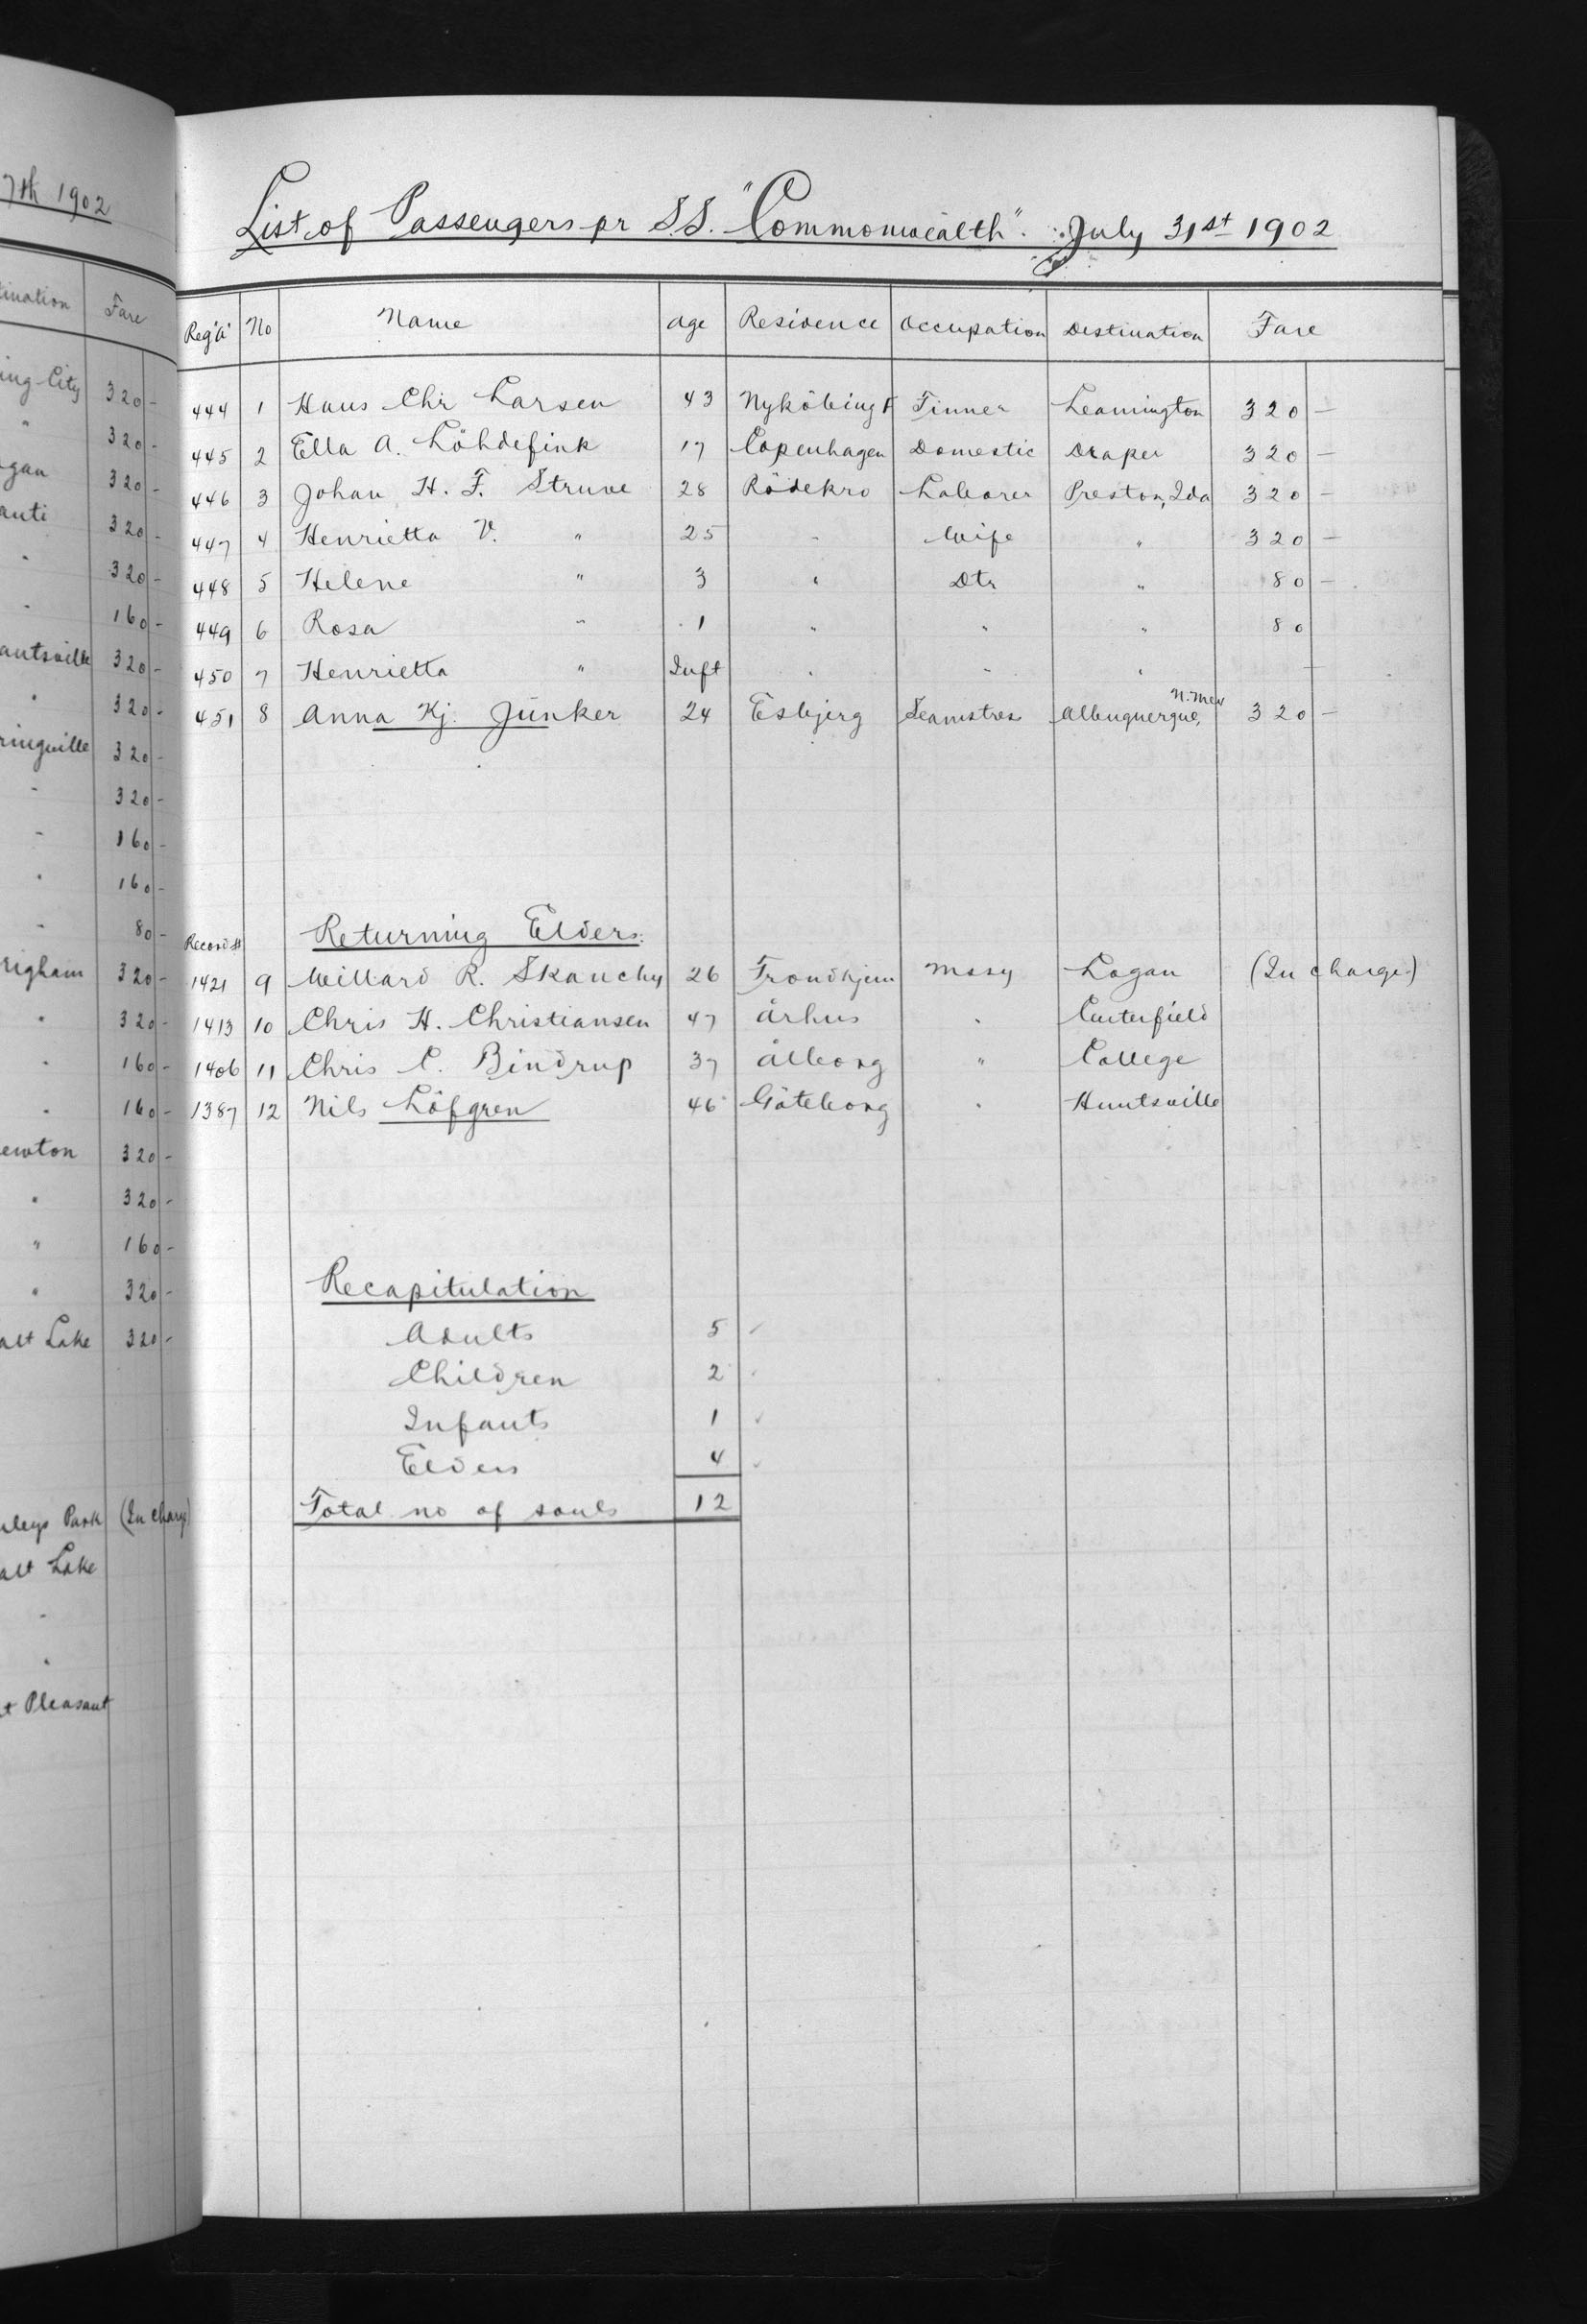 7th 1902
Fare
320 -
320 -
320 -
320 -
320 -
160 -
320 -
320 -
320 -
320 -
160 -
160 -
80 -
320 -
320 -
160 -
160 -
320 -
320 -
160 -
320 -
Lake 320 -
Park (In charge)
Lake
Pleasant
List of Passengers pr S.S. "Commonwealth". July 31st 1902
Reg "A" No Name Age Residence Occupation Destination Fare
444 1 Hans Chr Larsen 43 Nyköbing F Tinner Leamington 320 -
445 2 Ella A. Löhdefink 17 Copenhagen Domestic Draper 320 -
446 3 Johan H. F. Struve 28 Rödekro Laborer Preston, Ida 320 -
447 4 Henrietta V. " 25 " Wife " 320 -
448 5 Helene " 3 " Dtr " 80 -
449 6 Rosa " 1 " " " 80
450 7 Henrietta " Inft " " " -
451 8 Anna Kj. Junker 24 Esbjerg Seamstres Albuquerque, N. Mex 320 -
Record # Returning Elders:
1421 9 Willard R. Skanchy 26 Trondhjem Missy Logan (In charge)
1413 10 Chris H. Christiansen 47 Århus " Centerfield
1406 11 Chris C. Bindrup 37 Ålborg " College
1387 12 Nils Löfgren 46 Göteborg " Huntsville
Recapitulation
Adults 5 ✓
Children 2
Infants 1 ✓
Elders 4 ✓
Total no of souls 12